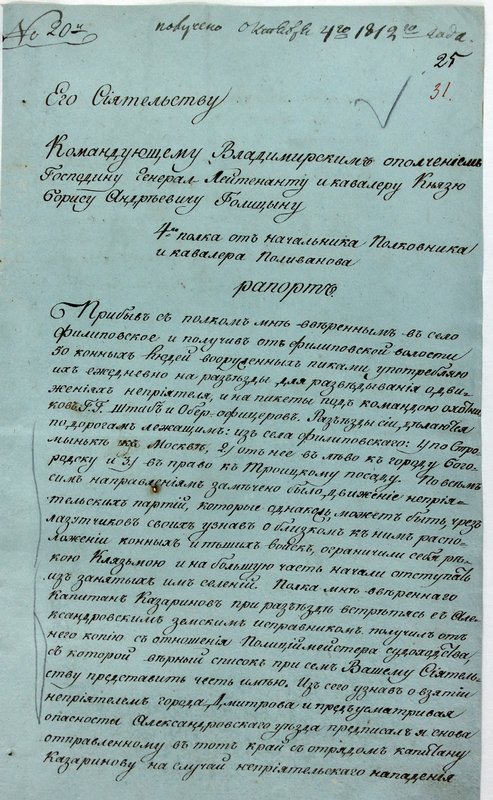 № 20й
получено Октября 4го 1812го года.
25
31.
Его Сіятельству
Командующему Владимирскимъ ополченіемъ
Господину Генерал Лейтенанту и кавалеру Князю
Борису Андрѣевичу Голицыну
4го полка отъ начальника Полковника
и кавалера Поливанова
рапортъ
Прибывъ съ полкомъ мнѣ ввѣреннымъ въ село
Филиповское и получивъ отъ филиповской волости
50 конныхъ людей вооруженныхъ пиками, употребляю
ихъ ежедневно на разъѣзды для развѣдыванія о дви-
женіяхъ непріятеля, и на пикеты подъ командою охотни-
ковъ Г.Г. штабъ и обер-офицеровъ. Разъѣзды сіи дѣлаются
по дорогамъ лежащимъ: изъ села филиповскаго: 1) по Стро-
мынькѣ къ Москвѣ, 2) отъ нее въ лѣво къ городу Бого-
родску и 3) въ право къ Троицкому посаду. По всѣмъ
симъ направленіямъ замѣчено было движеніе непрія-
тельскихъ партій, которые однакожъ можетъ быть чрез
лазутчиковъ своихъ узнавъ о близкомъ къ нимъ распо-
ложеніи конныхъ и пѣшихъ войскъ, ограничили себя рѣ-
кою Клязьмою и на большую часть начали отступать
изъ занятыхъ имъ селеній. Полка мнѣ ввѣреннаго
Капитанъ Казариновъ при разъѣздѣ встрѣтясь съ Але-
ксандровскимъ земскимъ исправникомъ получилъ отъ
него копію съ отношенія Полицiймейстера судогодства,
съ которой вѣрный списокъ при семъ Вашему Сіятель-
ству представить честь имѣю. Изъ сего узнавъ о взятіи
непріятелемъ города Дмитрова и предъусматривая
опасности Александровскаго уѣзда предписалъ я снова
отправленному въ тотъ край съ отрядомъ капитану
Казаринову на случай непріятельскаго нападенія